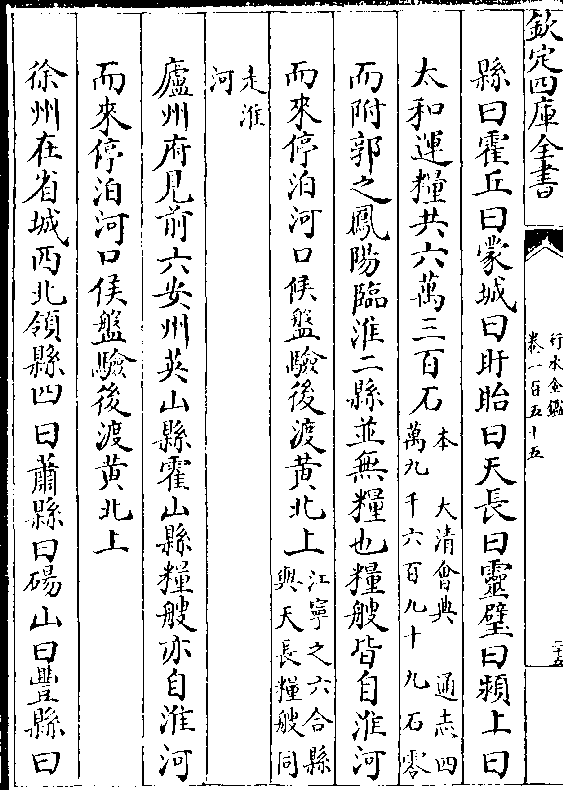 欽定四庫全書
行水金鑑
卷一百五十五
二十五
縣曰霍丘曰蒙城曰盱眙曰天長曰靈璧曰潁上曰
太和運糧共六萬三百石本　大清會典　通志四
萬九千六百九十九石零
而附郭之鳳陽臨淮二縣並無糧也糧艘皆自淮河
而來停泊河口候盤驗後渡黃北上江寧之六合縣
與天長糧艘同
走淮
河
廬州府見前六安州英山縣霍山縣糧艘亦自淮河
而來停泊河口俟盤驗後渡黃北上
徐州在省城西北領縣四曰蕭縣曰碭山曰豐縣曰